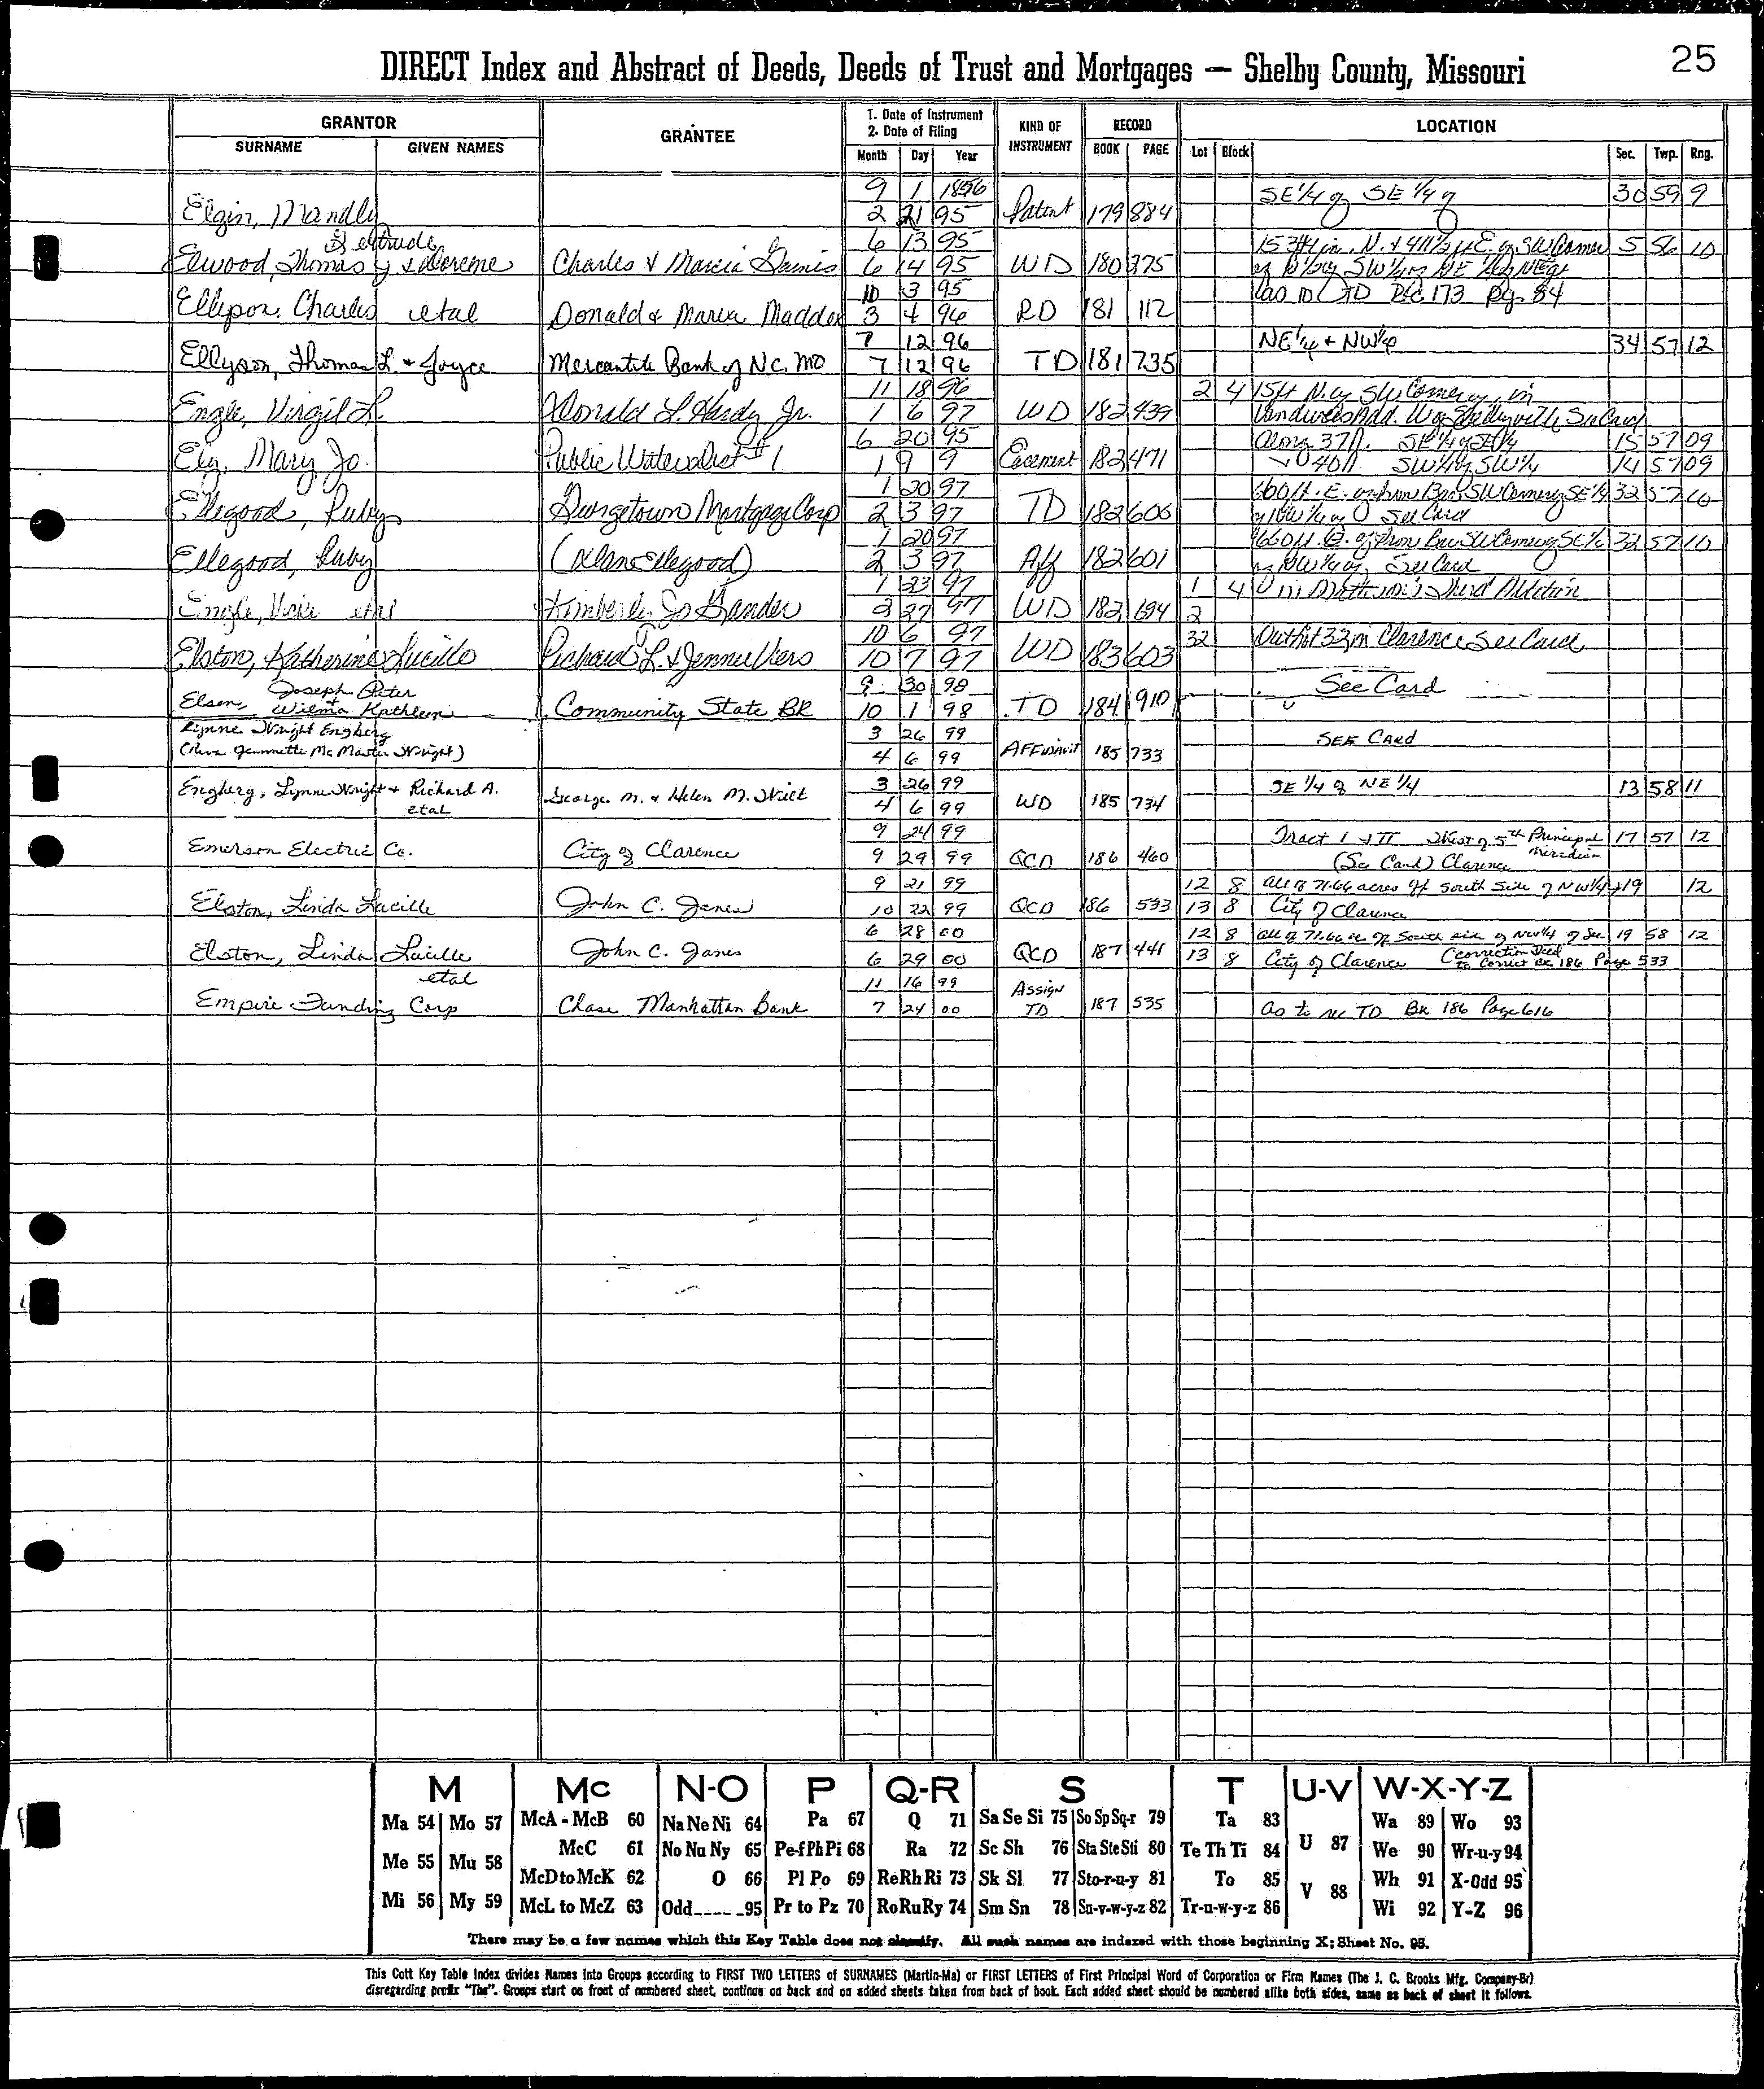 25
DIRECT Index and Abstract of Deeds, Deeds of Trust and Mortgages — Shelby County, Missouri
GRANTOR GRANTEE 1. Date of Instrument 2. Date of Filing KIND OF INSTRUMENT RECORD LOCATION
SURNAME GIVEN NAMES Month Day Year BOOK PAGE Lot Block Sec. Twp. Rng.
9 1 1856 SE 1/4 of SE 1/4 of 30 59 9
Elgin, 2 21 95 Patent 179 884
Gertrude 6 13 95 5 56 10
Elwood, Thomas Charles & Marcia 6 14 95 WD 180 375
10 3 95 173 Pg. 84
Charles etal Donald & Maria 3 4 96 RD 181 112
7 12 96 NE 1/4 + NW 1/4 34 57 12
Ellyson, Thomas L. + Joyce Mercantile Bank of N.C. MO 7 12 96 TD 181 735
11 18 96 2 4 15 ft N. of SW Corner of, in
Engle, Virgil L. Donald L. Hardy Jr. 1 6 97 WD 182 439 Add. W of Shelbyville See Card
6 20 95 Along 37 ft. SE 1/4 of SE 1/4 15 57 09
Ely, Mary Jo. Public #1 1 9 9 Easement 182 471 40 ft. SW 1/4 of SW 1/4 14 57 09
1 20 97 660 ft. E. SW Corner of SE 1/4 32 57 10
Ellegood, Ruby Georgetown Mortgage Corp 2 3 97 TD 182 606 See Card
1 20 97 660 ft. E. of Iron Bar SW Corner of SE 1/4 32 57 10
Ellegood, Ruby 2 3 97 Aff 182 601 See Card
1 23 97 1 4 Third Addition
etal Kimberly Jo Gander 2 27 97 WD 182 694 2
10 6 97 32 Outlot 32 in Clarence See Card
Elston, Katherine Lucille Richard L. & Jennie 10 7 97 WD 183 603
Joseph Peter 9 30 98 See Card
Elsen, Wilma Kathleen Community State BK 10 1 98 TD 184 910
Lynne Wright Engberg 3 26 99 SEE CARD
4 6 99 AFFIDAVIT 185 733
Engberg, Lynne Wright + Richard A. George M. & Helen M. 3 26 99 SE 1/4 of NE 1/4 13 58 11
etal 4 6 99 WD 185 734
9 24 99 Tract I & II West of 5th Principal Meridian 17 57 12
Emerson Electric Co. City of Clarence 9 29 99 QCD 186 460 (See Card) Clarence
9 21 99 12 8 All of 71.66 acres off South Side of NW 1/4 19 12
Elston, Linda Lucille John C. Janes 10 22 99 QCD 186 533 13 8 City of Clarence
6 28 00 12 8 All of 71.66 ac off South side of NW 1/4 of Sec 19 58 12
Elston, Linda Lucille John C. Janes 6 29 00 QCD 187 441 13 8 City of Clarence (correction Deed to Correct BK 186 Page 533
etal 11 16 99 Assign
Empire Funding Corp Chase Manhattan Bank 7 24 00 TD 187 535 As to rec TD BK 186 Page 616
M Mc N-O P Q-R S T U-V W-X-Y-Z
Ma 54 Mo 57 McA - McB 60 Na Ne Ni 64 Pa 67 Q 71 Sa Se Si 75 So Sp Sq-r 79 Ta 83 Wa 89 Wo 93
McC 61 No Nu Ny 65 Pe-f Ph Pi 68 Ra 72 Sc Sh 76 Sta Ste Sti 80 Te Th Ti 84 U 87 We 90 Wr-u-y 94
Me 55 Mu 58 McD to McK 62 O 66 Pl Po 69 Re Rh Ri 73 Sk Sl 77 Sto-r-u-y 81 To 85 V 88 Wh 91 X-Odd 95
Mi 56 My 59 McL to McZ 63 Odd____95 Pr to Pz 70 Ro Ru Ry 74 Sm Sn 78 Su-v-w-y-z 82 Tr-u-w-y-z 86 Wi 92 Y-Z 96
There may be a few names which this Key Table does not classify. All such names are indexed with those beginning X; Sheet No. 95.
This Cott Key Table Index divides Names into Groups according to FIRST TWO LETTERS of SURNAMES (Martin-Ma) or FIRST LETTERS of First Principal Word of Corporation or Firm Names (The J. C. Brooks Mfg. Company-Br)
disregarding prefix "The". Groups start on front of numbered sheet, continue on back and on added sheets taken from back of book. Each added sheet should be numbered alike both sides, same as back of sheet it follows.